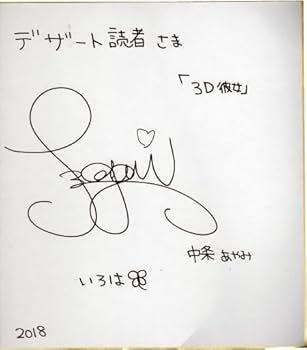 デザート読者さま
「3D彼女」
中条あやみ
いろは
2018